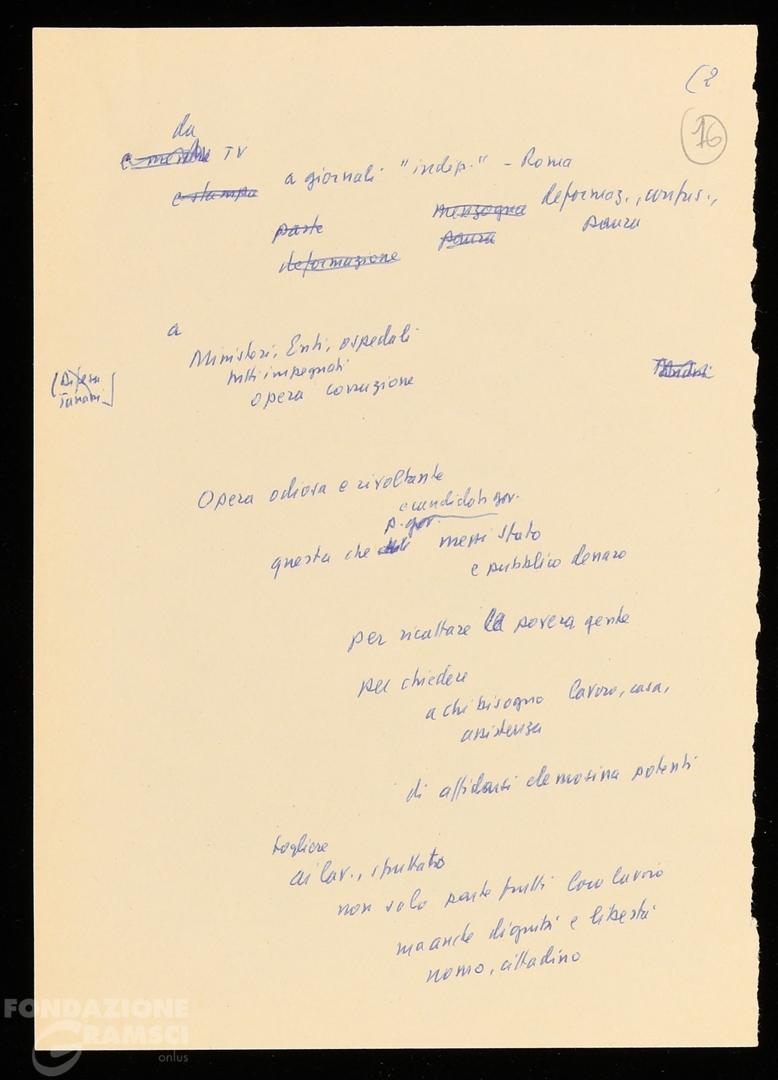 (2
16
da
e mentre TV
e stampa
a giornali "indip." - Roma
parte
menzogna deformaz., confus.,
deformazione
paura paura
a
Ministeri, Enti, ospedali
tutti impegnati
opera corruzione
(Difesa
Tanassi)
Opera odiosa e rivoltante
e candidati gov.
p. gov.
questa che mezzi Stato
e pubblico denaro
per ricattare la povera gente
per chiedere
a chi bisogno lavoro, casa,
assistenza
di affidarsi elemosina potenti
togliere
ai lav., sfruttato
non solo parte frutti loro lavoro
ma anche dignità e libertà
uomo, cittadino
FONDAZIONE
GRAMSCI
onlus